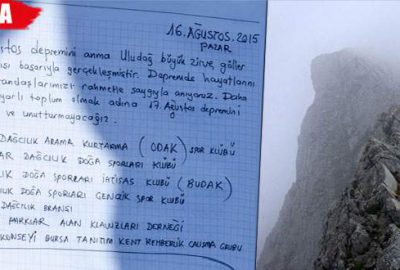 A
16. AĞUSTOS. 2015
PAZAR
depremini anma Uludağ büyük zirve, göller
başarıyla gerçekleşmiştir. Depremde hayatlarını
rahmetle saygıyla anıyoruz. Daha
toplum olmak adına 17. Ağustos depremini
ve unutturmayacağız.
DAĞCILIK ARAMA KURTARMA (ODAK) SPOR KLÜBÜ
DAĞCILIK DOĞA SPORLARI KLÜBÜ
DOĞA SPORLARI İHTİSAS KLÜBÜ (BUDAK)
DOĞA SPORLARI GENÇLİK SPOR KLÜBÜ
DAĞCILIK BRANŞI
PARKLAR ALAN KLAVUZLARI DERNEĞİ
KONSEYİ BURSA TANITIM KENT REHBERLİK ÇALIŞMA GRUBU